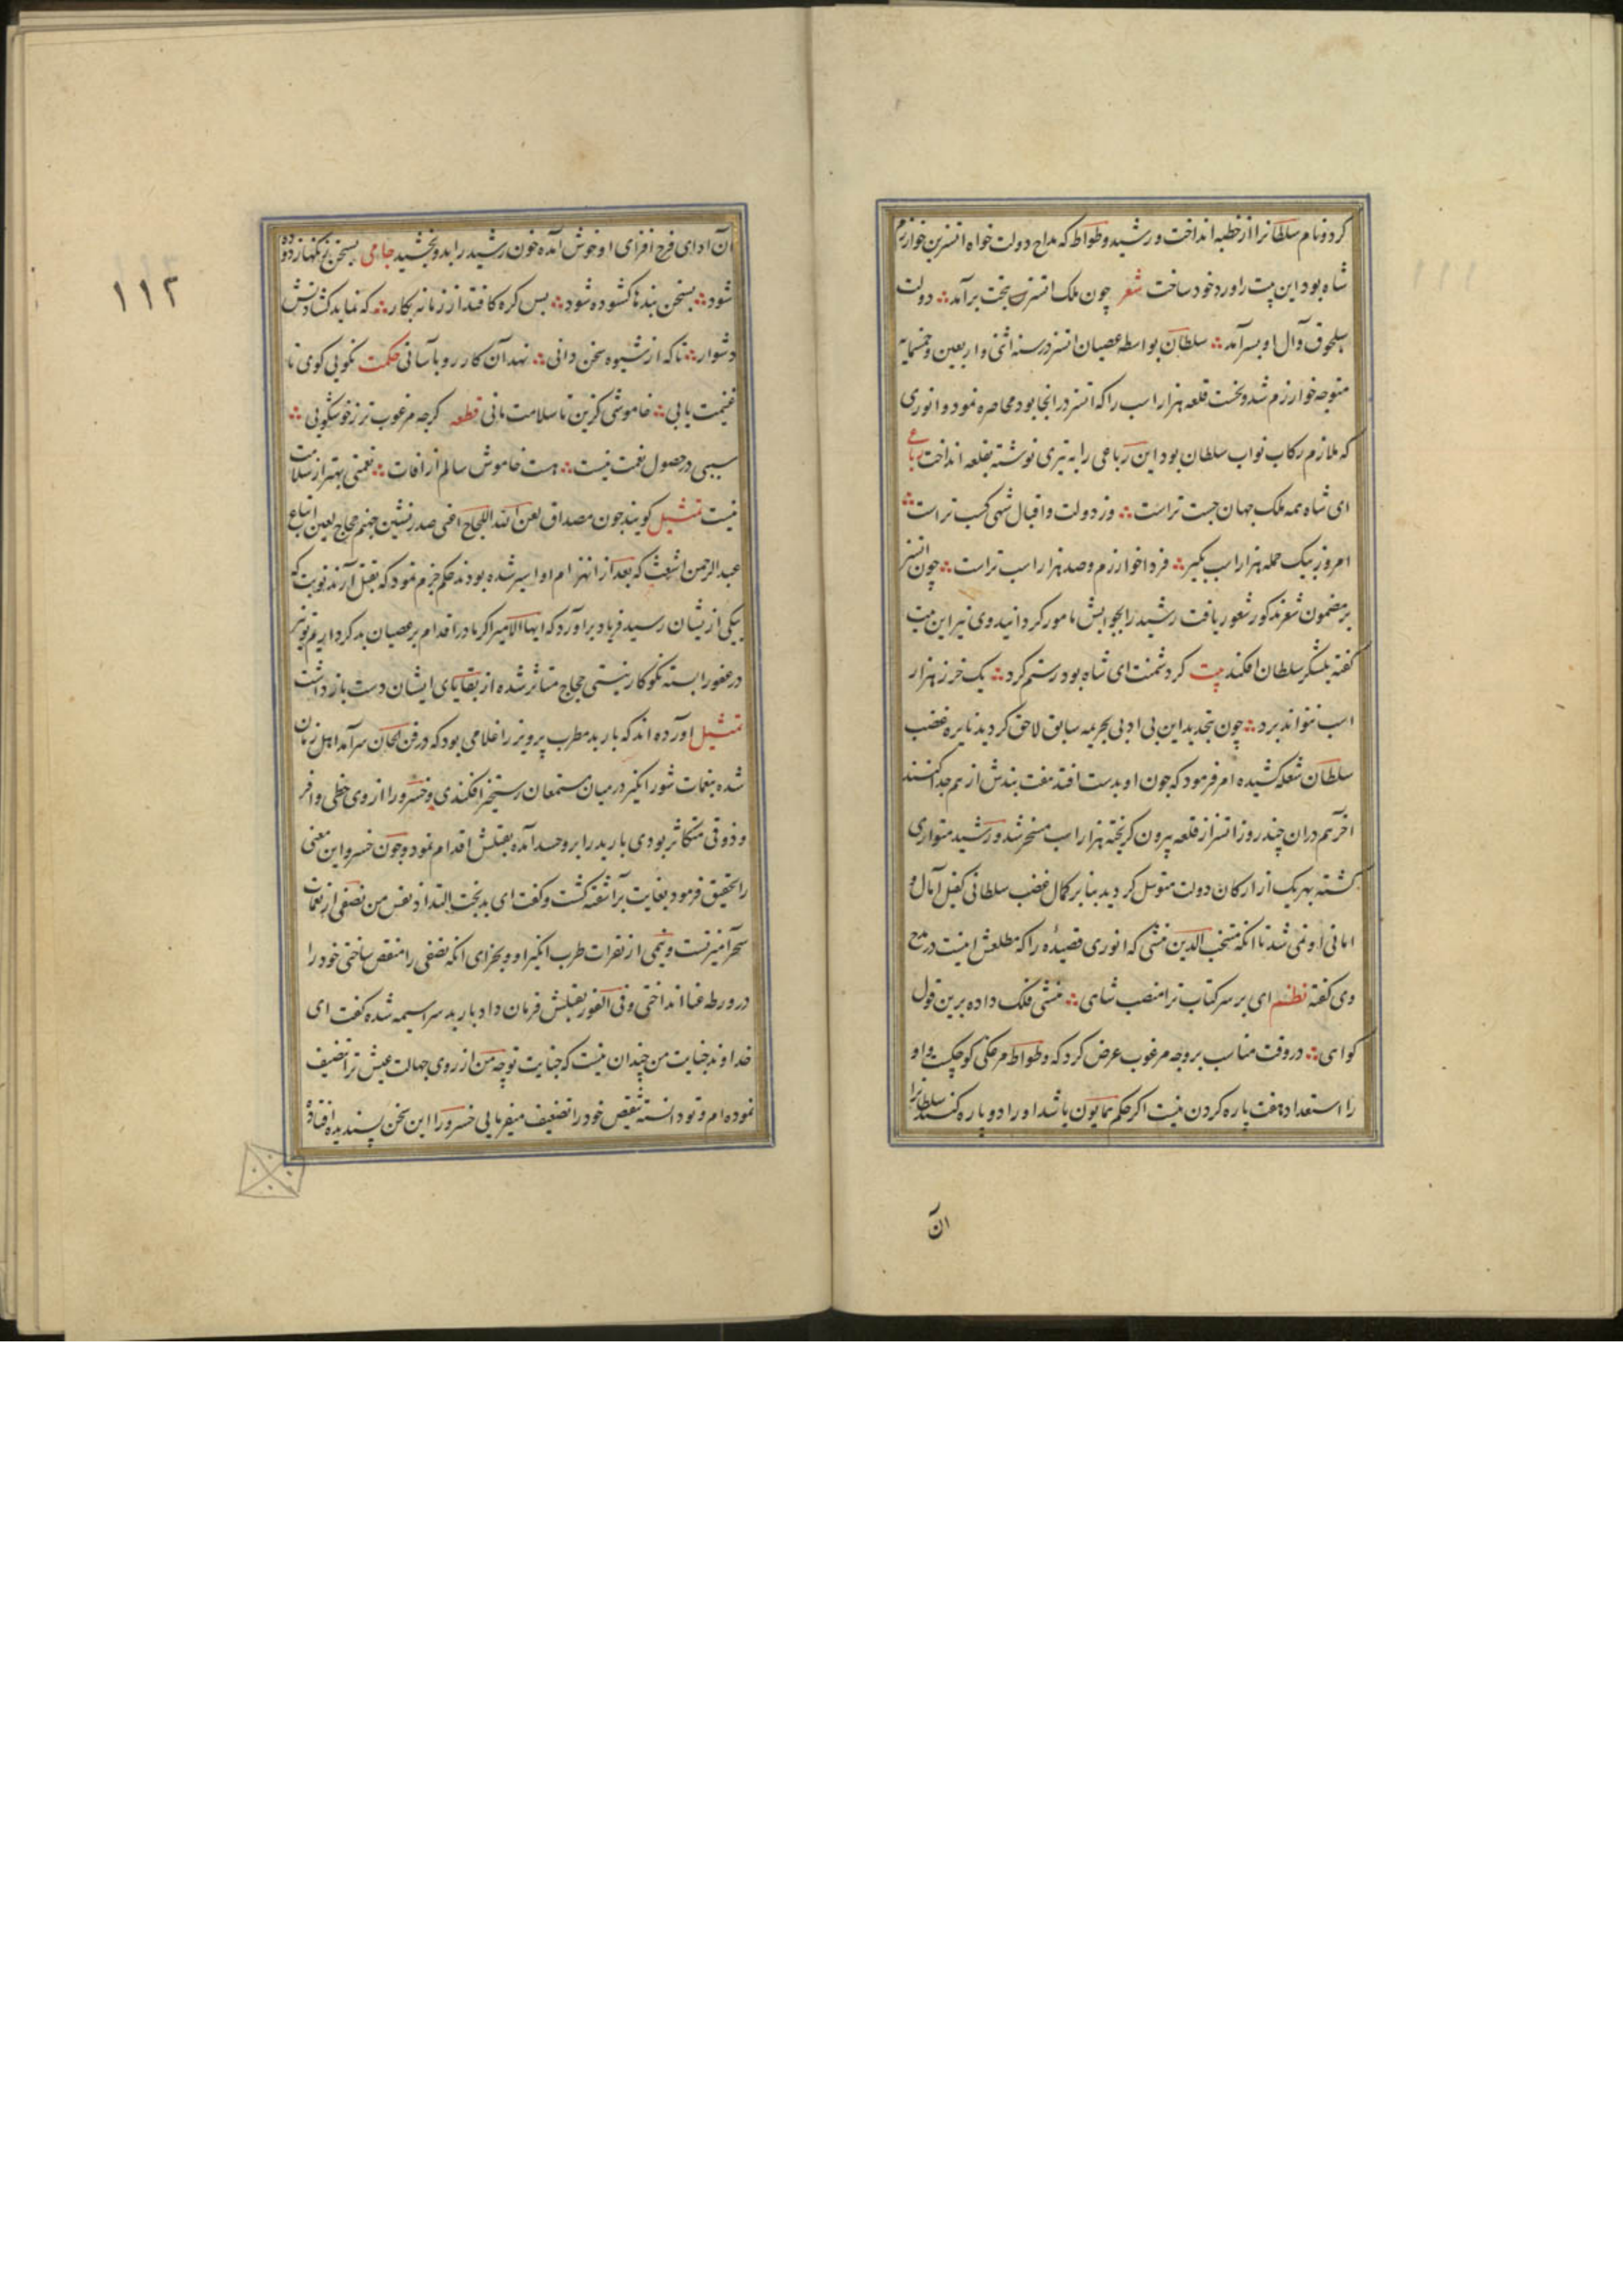 کرد و نام سلطانرا از خطبه انداخت و رشید وطواط که مداح دولت خواه اتسز بن خوارزم
شاه بود این بیت را ورد خود ساخت شعر چون ملک اتسز بتخت برآمد دولت
سلجوق و آل او بسر آمد سلطان بواسطه عصیان اتسز در سنه اثنی و اربعین و خمسمایه
متوجه خوارزم شد و نخست قلعه هزار اسب را که اتسز در انجا بود محاصره نمود و انوری
که ملازم رکاب نواب سلطان بود این رباعی را به تیری نوشته بقلعه انداخت رباعی
ای شاه همه ملک جهان حسب تراست وز دولت و اقبال شهی کسب تراست
امروز بیک حمله هزار اسب بگیر فردا خوارزم و صد هزار اسب تراست چون اتسز
بر مضمون شعر مذکور شعور یافت رشید را بجوابش مامور کردانید وی نیز این بیت
گفته بلشکر سلطان افکند بیت کر دشمنت ای شاه بود رستم کرد یک خر ز هزار
اسب نتواند برد چون بتجدید این بی ادبی بجریمه سابق لاحق کردید نایره غضب
سلطان شعله کشیده امر فرمود که چون او بدست افتد هفت بندش از هم جدا کنند
اخر هم دران چند روز اتسز از قلعه بیرون کریخته هزار اسب مسخر شد و رشید متواری
کشته بهر یک از ارکان دولت متوسل کردید بنا بر کمال غضب سلطانی کفیل آمال و
امانی او نمی شد تا انکه منتخب الدین منشی که انوری قصیده را که مطلعش اینست در مدح
وی کفته نظم ای بر سر کتاب ترا منصب شاهی منشی فلک داده برین قول
کواهی در وقت مناسب بر وجه مرغوب عرض کرد که وطواط مرغکی کوچکست و او
را استعداد هفت پاره کردن نیست اکر حکم همایون باشد او را دو پاره کنند سلطانرا
ان
١١٢
آن ادای فرح افزای او خوش آمده خون رشید را بدو بخشید جامی بسخن
شود بسخن بندها کشوده شود بس کره کافتد از زمانه بکار که نماید کشادنش
دشوار ناکه از شیوه سخن دانی نهد آن کار رو بآسانی حکمت نکویی کوی تا
غنیمت یابی خاموشی کزین تا سلامت مانی قطعه کرچه مرغوب تر ز خوشکویی
سببی در حصول نعمت نیست هست خاموش سالم از افات نعمتی بهتر از سلامت
نیست تمثیل کویند چون مصداق لعن الله الحجاج اعنی صدر نشین جهنم حجاج لعین اتباع
عبدالرحمن اشعث که بعد از انهزام او اسیر شده بودند حکم جزم نمود که بقتل آرند نوبت که
بیکی ازیشان رسید فریاد براورد که ایها الامیر اکر ما در اقدام بر عصیان بد کرداریم تو نیز
در عفو را بسته نکو کار نیستی حجاج متاثر شده از بقایای ایشان دست باز داشت
تمثیل اورده اند که باربد مطرب پرویز را غلامی بود که در فن الحان سرآمد اهل زمان
شده بنغمات شورانکیز در میان مستمعان رستخیز افکندی و خسرو را از وی حظی وافر
و ذوقی متکاثر بودی باربد را برو حسد آمده بقتلش اقدام نمود و چون خسرو این معنی
را تحقیق فرمود بغایت برآشفته کشت و کفت ای بدبخت التذاذ نفس من نصفی از نغمات
سحرآمیز تست و نیمی از نقرات طرب انکیز او و بجزای انکه نصفی را منغص ساختی خود را
در ورطه عنا انداختی و فی الفور بقتلش فرمان داد باربد سراسیمه شده کفت ای
خداوند جنایت من چندان نیست که جنایت تو چه من از روی جهالت عیش ترا تنصیف
نموده ام و تو دانسته نقص خود را تضعیف میفرمایی خسرو را این سخن پسندیده افتاد